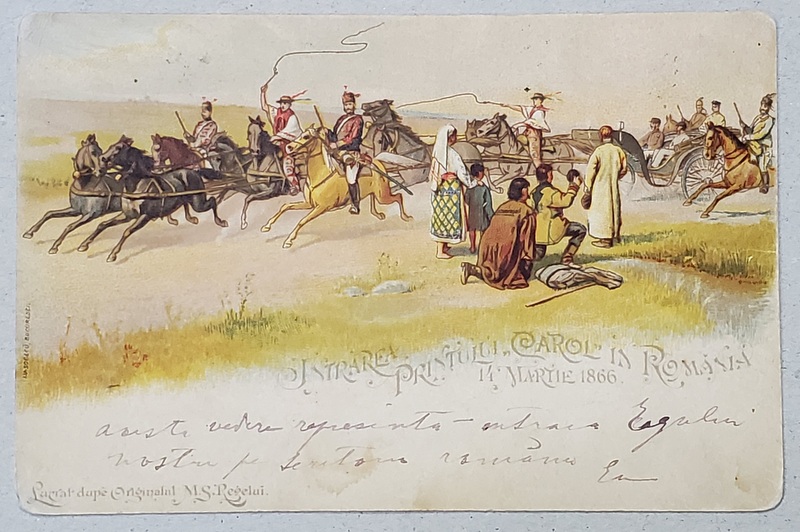 INTRAREA PRINTULUI „CAROL" IN ROMÂNIA
14 MARTIE 1866.
acesta vedere represinta intrarea Regelui
nostru pe teritoriu român
Eu
Lucrat dupe Originalul M.S. Regelui.